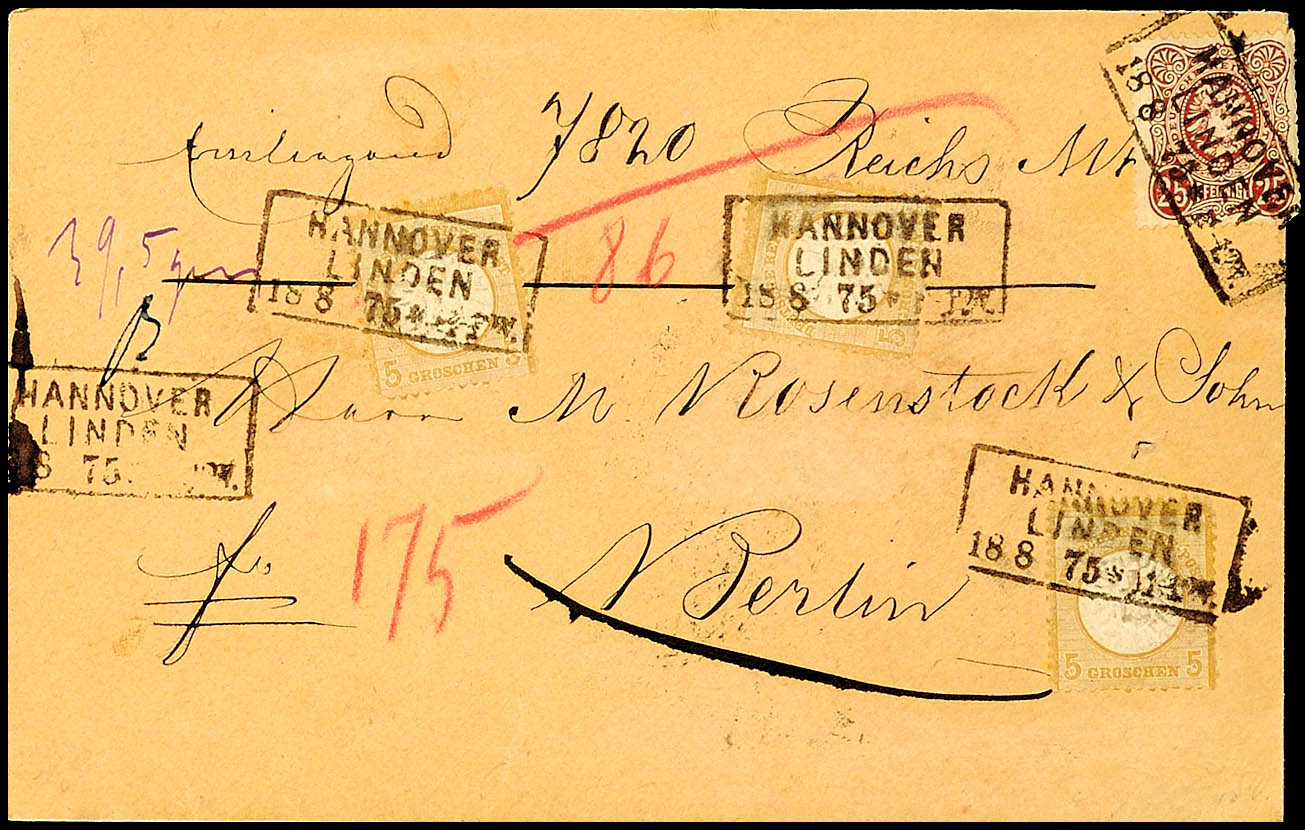 7820 Reichs Mk
HANNOVER
LINDEN
18 8 75
25 PFENNIGE 25
HANNOVER
LINDEN
18 8 75
5 GROSCHEN 5
86
HANNOVER
LINDEN
18 8 75
5
39,5 grm
HANNOVER
LINDEN
8 75
Herrn M Rosenstock & Sohn
HANNOVER
LINDEN
18 8 75
5 GROSCHEN 5
175
Berlin